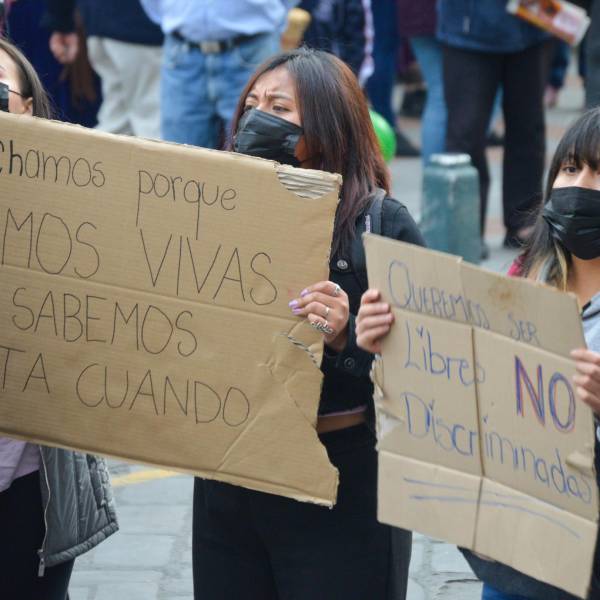 Chamos porque
MOS VIVAS
SABEMOS
TA CUANDO
QUEREMOS SER
Libres NO
Discriminadas